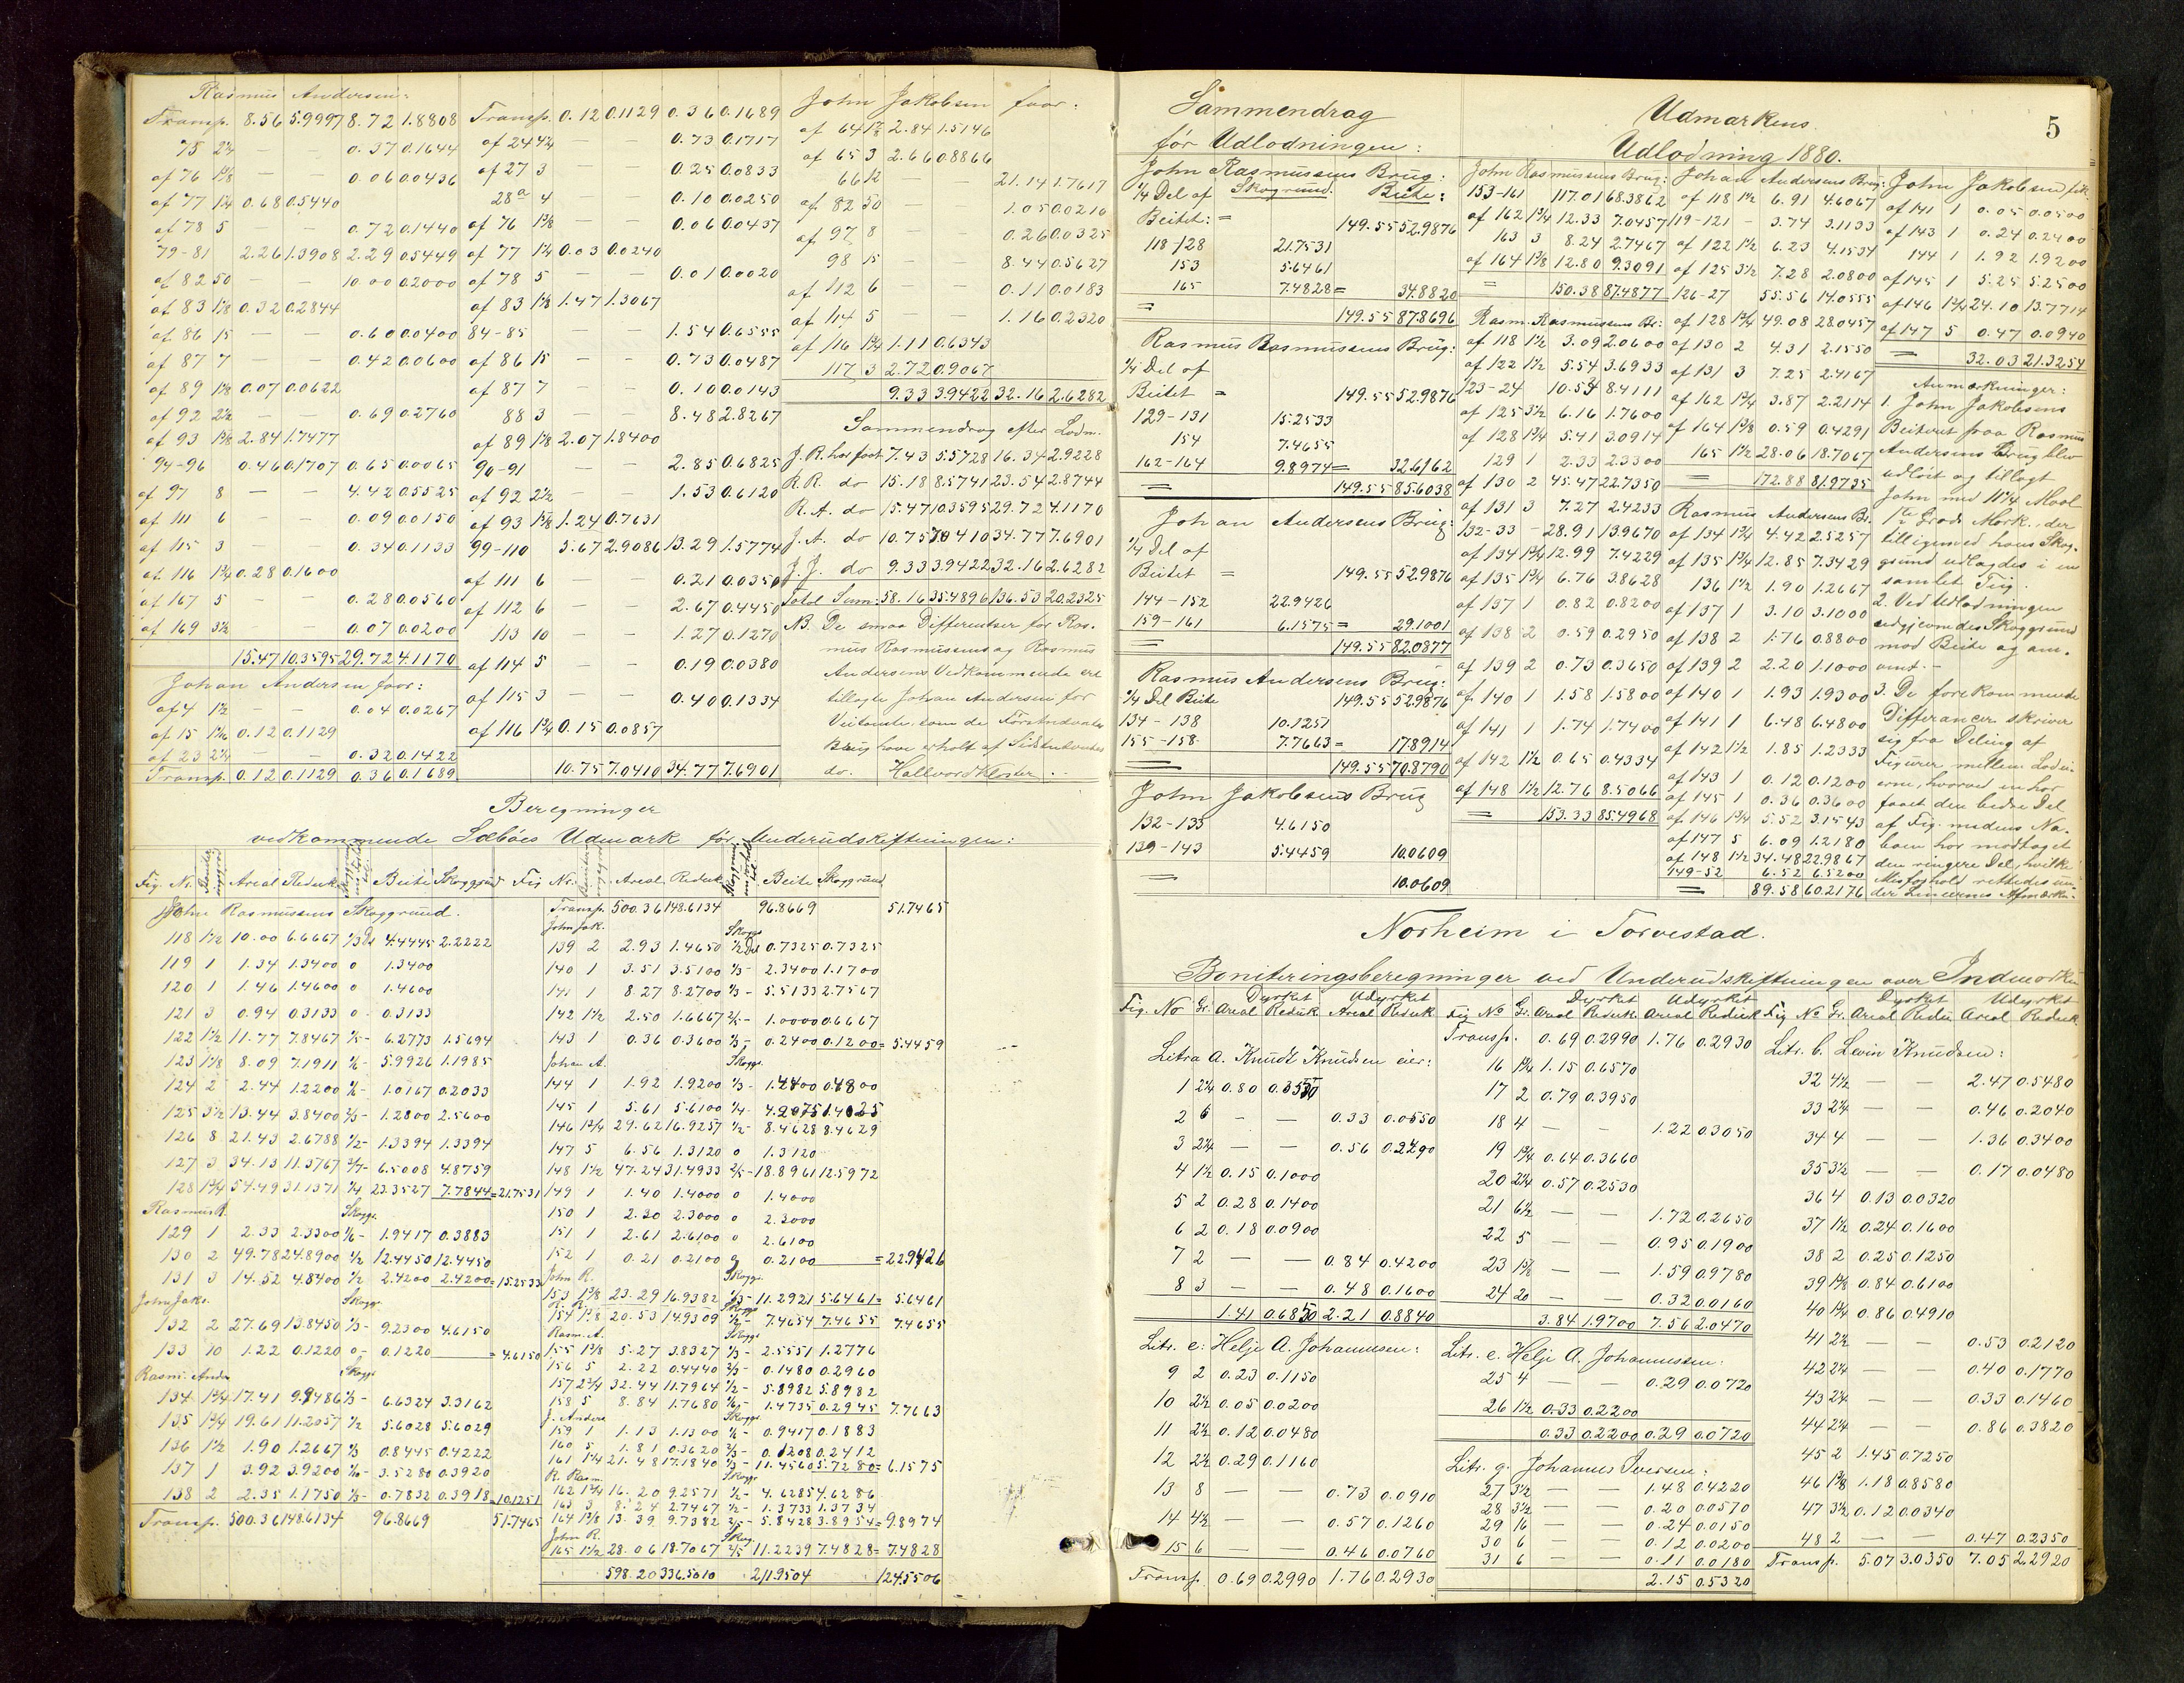 Rasmus Andersen:
Transp. 8.56 5.9997 8.72 1.8808
75 2¼ — — 0.37 0.1644
af 76 1⅜ — — 0.06 0.0436
af 77 1¼ 0.68 0.5440
af 78 5 — — 0.72 0.1440
79-81 2.26 1.3908 2.29 0.5449
af 82 50 — — 10.00 0.2000
af 83 1⅛ 0.32 0.2844
af 86 15 — — 0.60 0.0400
af 87 7 — — 0.42 0.0600
af 89 1⅛ 0.07 0.0622
af 92 2½ — — 0.69 0.2760
af 93 1⅝ 2.84 1.7477
94-96 0.46 0.1707 0.65 0.0065
af 97 8 — — 4.42 0.5525
af 111 6 — — 0.09 0.0150
af 115 3 — — 0.34 0.1133
af 116 1¾ 0.28 0.1600
af 167 5 — — 0.28 0.0560
af 169 3½ — — 0.07 0.0200
15.47 10.3595 29.72 4.1170
Johan Andersen faar:
af 4 1½ — — 0.04 0.0267
af 15 0.12 0.1129
af 23 2¼ — — 0.32 0.1422
Transp. 0.12 0.1129 0.36 0.1689
Transp. 0.12 0.1129 0.36 0.1689
af 24 4¼ — 0.73 0.1717
af 27 3 — 0.25 0.0833
28a 4 — — 0.10 0.0250
af 76 1⅜ — — 0.06 0.0437
af 77 1¼ 0.03 0.0240
af 78 5 — — 0.01 0.0020
af 83 1⅛ 1.47 1.3067
84-85 1.54 0.6555
af 86 15 — — 0.73 0.0487
af 87 7 — — 0.10 0.0143
88 3 — — 8.48 2.8267
af 89 1⅛ 2.07 1.8400
90-91 — — 2.85 0.6825
af 92 2½ — — 1.53 0.6120
af 93 1⅝ 1.24 0.7631
99-110 5.67 2.9086 13.29 1.5774
af 111 6 0.21 0.0350
af 112 6 — — 2.67 0.4450
113 10 — — 1.27 0.1270
af 114 5 — — 0.19 0.0380
af 115 3 — — 0.40 0.1334
af 116 1¾ 0.15 0.0857
10.75 7.0410 34.77 7.6901
John Jakobsen faar:
af 64 1⅞ 2.84 1.5146
af 65 3 2.66 0.8866
66 12 — 21.14 1.7617
af 82 50 — — 1.05 0.0210
af 97 8 — — 0.26 0.0325
98 15 — — 8.44 0.5627
af 112 6 — — 0.11 0.0183
af 114 5 — — 1.16 0.2320
af 116 1¾ 1.11 0.6343
117 3 2.72 0.9067
9.33 3.9422 32.16 2.6282
Sammendrag efter Lodn.
J. R. har faaet 7.43 5.5728 16.34 2.9228
R. R. do 15.18 8.5741 23.54 2.8744
R. A. do 15.47 10.3595 29.72 4.1170
J. A. do 10.75 7.0410 34.77 7.6901
J. J. do 9.33 3.9422 32.16 2.6282
Total Sum: 58.16 35.4896 136.53 20.2325
NB. De smaa Differentser for Ras-
mus Rasmussens og Rasmus
Andersens Vedkommende ere
tillagte Johan Andersen for
som de Førstnævnte
Brug have erholt af Sidstnævntes
do. Hallvord Kloster.
Beregninger
vedkommende Sæbøes Udmark før Underudskiftningen:
Fig. Nr. Areal Reduk. Beite Skoggrund Fig Nr. Areal Reduk. Beite Skoggrund
John Rasmussens Skoggrund.
118 1½ 10.00 6.6667 ⅓ Del 4.4445 2.2222
119 1 1.34 1.3400 0 1.3400
120 1 1.46 1.4600 0 1.4600
121 3 0.94 0.3133 0 0.3133
122 1½ 11.77 7.8467 ⅕ - 6.2773 1.5694
123 1⅛ 8.09 7.1911 ⅙ - 5.9926 1.1985
124 2 2.44 1.2200 ⅙ - 1.0167 0.2033
125 3½ 13.44 3.8400 ⅔ - 1.2800 2.5600
126 8 21.43 2.6788 ½ - 1.3394 1.3394
127 3 34.13 11.3767 3/7 - 6.5008 4.8759
128 1¾ 54.49 31.1371 ¼ 23.3527 7.7844 = 21.7531
Rasmus R. Skoggr.
129 1 2.33 2.3300 ⅙ - 1.9417 0.3883
130 2 49.78 24.8900 ½ 12.4450 12.4450
131 3 14.52 4.8400 ½ 2.4200 2.4200 = 15.2533
John Jak. Skoggr.
132 2 27.69 13.8450 ⅓ - 9.2300 4.6150
133 10 1.22 0.1220 0 - 0.1220 = 4.6150
Rasm. Andr. Skoggr.
134 1¾ 17.41 9.9486 ⅓ - 6.6324 3.3162
135 1¾ 19.61 11.2057 ½ 5.6028 5.6029
136 1½ 1.90 1.2667 ⅓ 0.8445 0.4222
137 1 3.92 3.9200 ⅒ - 3.5280 0.3920
138 2 2.35 1.1750 ⅓ - 0.7832 0.3918 = 10.1251
Transp. 500.36 148.6134 96.8669 51.7465
Transp. 500.36 148.6134 96.8669 51.7465
John Jak. Skoggr.
139 2 2.93 1.4650 ½ Del 0.7325 0.7325
140 1 3.51 3.5100 ⅓ - 2.3400 1.1700
141 1 8.27 8.2700 ⅓ - 5.5133 2.7567
142 1½ 2.50 1.6667 ⅖ - 1.0000 0.6667
143 1 0.36 0.3600 ⅓ - 0.2400 0.1200 = 5.4459
Johan A. Skoggr.
144 1 1.92 1.9200 ¼ - 1.4400 0.4800
145 1 5.61 5.6100 ¼ - 4.2075 1.4025
146 1¾ 29.62 16.9257 ½ - 8.4628 8.4629
147 5 6.56 1.3120 0 1.3120
148 1½ 47.24 31.4933 ⅖ - 18.8961 12.5972
149 1 1.40 1.4000 0 1.4000
150 1 2.30 2.3000 0 2.3000
151 1 2.61 2.6100 0 2.6100
152 1 0.21 0.2100 0 0.2100 = 22.9426
John R. Skoggr.
153 1⅜ 23.29 16.9382 ⅓ - 11.2921 5.6461 = 5.6461
R. R. Skoggr.
154 1⅜ 20.53 14.9309 ½ - 7.4654 7.4655 7.4655
Rasm. A. Skoggr.
155 1⅜ 5.27 3.8327 ⅓ - 2.5551 1.2776
156 5 2.22 0.4440 ⅔ - 0.1480 0.2960
157 2¾ 32.44 11.7964 ½ - 5.8982 5.8982
158 5 8.84 1.7680 ⅙ - 1.4735 0.2945 7.7663
J. Anders. Skoggr.
159 1 1.13 1.1300 ⅙ - 0.9417 0.1883
160 5 1.81 0.3620 ⅔ - 0.1208 0.2412
161 1¼ 21.48 17.1840 ⅓ - 11.4560 5.7280 = 6.1575
R. Rasm. Skoggr.
162 1¾ 16.20 9.2571 ½ - 4.6285 4.6286
163 3 8.24 2.7467 ½ - 1.3733 1.3734
164 1⅜ 13.39 9.7382 ⅖ - 5.8428 3.8954 = 9.8974
John R. Skog.
165 1½ 28.06 18.7067 ⅖ 11.2239 7.4828 = 7.4828
598.20 336.5010 211.9504 124.5506
5
Sammendrag
før Udlodningen:
John Rasmussens Brug:
¼ Del af Skoggrund. Beite:
Beitet: = 149.55 52.9876
118-128 21.7531
153 5.6461
165 7.4828 = 34.8820
= 149.55 87.8696
Rasmus Rasmussens Brug:
¼ Del af
Beitet = 149.55 52.9876
129-131 15.2533
154 7.4655
162-164 9.8974 = 32.6162
= 149.55 85.6038
Johan Andersens Brug:
¼ Del af
Beitet = 149.55 52.9876
144-152 22.9426
159-161 6.1575 = 29.1001
149.55 82.0877
Rasmus Andersens Brug:
¼ Del Beite 149.55 52.9876
134-138 10.1251
155-158 7.7663 = 17.8914
149.55 70.8790
John Jakobsens Brug
132-133 4.6150
139-143 5.4459 10.0609
10.0609
Udmarkens
Udlodning 1880.
John Rasmussens Brug:
153-161 117.01 68.3862
af 162 1¾ 12.33 7.0457
163 3 8.24 2.7467
af 164 1⅜ 12.80 9.3091
= 150.38 87.4877
Rasm. Rasmussens Br:
af 118 1½ 3.09 2.0600
af 122 1½ 5.54 3.6933
123-24 10.53 8.4111
af 125 3½ 6.16 1.7600
af 128 1¾ 5.41 3.0914
129 1 2.33 2.3300
af 130 2 45.47 22.7350
af 131 3 7.27 2.4233
132-33 - 28.91 13.9670
af 134 1¾ 12.99 7.4229
af 135 1¾ 6.76 3.8628
af 137 1 0.82 0.8200
af 138 2 0.59 0.2950
af 139 2 0.73 0.3650
af 140 1 1.58 1.5800
af 141 1 1.74 1.7400
af 142 1½ 0.65 0.4334
af 148 1½ 12.76 8.5066
= 153.33 85.4968
Johan Andersens Brug:
af 118 1½ 6.91 4.6067
119-121 - 3.74 3.1133
af 122 1½ 6.23 4.1534
af 125 3½ 7.28 2.0800
126-27 55.56 14.0555
af 128 1¾ 49.08 28.0457
af 130 2 4.31 2.1550
af 131 3 7.25 2.4167
af 162 1¾ 3.87 2.2114
af 164 1⅜ 0.59 0.4291
165 1½ 28.06 18.7067
= 172.88 81.9735
Rasmus Andersens Br.
af 134 1¾ 4.42 2.5257
af 135 1¾ 12.85 7.3429
136 1½ 1.90 1.2667
af 137 1 3.10 3.1000
af 138 2 1.76 0.8800
af 139 2 2.20 1.1000
af 140 1 1.93 1.9300
af 141 1 6.48 6.4800
af 142 1½ 1.85 1.2333
af 143 1 0.12 0.1200
af 145 1 0.36 0.3600
af 146 1¾ 5.52 3.1543
af 147 5 6.09 1.2180
af 148 1½ 34.48 22.9867
149-52 6.52 6.5200
= 89.58 60.2176
John Jakobsen fik
af 141 1 0.05 0.0500
af 143 1 0.24 0.2400
144 1 1.92 1.9200
af 145 1 5.25 5.2500
af 146 1¾ 24.10 13.7714
af 147 5 0.47 0.0940
= 32.03 21.3254
Anmærkninger:
1. John Jakobsens
Beiteret paa Rasmus
Andersens Brug blev
udløst og tillagt
John med 11¼ Maal
1te Grads Mark, der
tilligemed hans Skog-
grund udlagdes i en
samlet Teig.
2. Ved Udlodningen
udjevnedes Skoggrund
mod Beite og om-
vendt.
3. De forekommende
Differancer skriver
sig fra Deling af
Figurer mellem Lodei-
erne, hvorved en har
faaet den bedre Del
af Fig. medens Na-
boen har modtaget
den ringere Del, hvilke
Misforhold rettedes un-
der Liniernes Afmærkn.
Norheim i Torvestad.
Boniteringsberegninger ved Underudskiftningen over Indmarken
Fig. No Gr. Dyrket Areal Reduk Udyrket Areal Reduk Fig No Gr. Dyrket Areal Reduk Udyrket Areal Reduk Fig No Gr. Dyrket Areal Reduk Udyrket Areal Reduk.
Litra A. Knudt Knudsen eier:
1 2¼ 0.80 0.3550
2 6 — — 0.33 0.0550
3 2¼ — — 0.56 0.2490
4 1½ 0.15 0.1000
5 2 0.28 0.1400
6 2 0.18 0.0900
7 2 — — 0.84 0.4200
8 3 — — 0.48 0.1600
1.41 0.6850 2.21 0.8840
Litr. e: Helje A. Johannesen:
9 2 0.23 0.1150
10 2½ 0.05 0.0200
11 2½ 0.12 0.0480
12 2½ 0.29 0.1160
13 8 — — 0.73 0.0910
14 4½ — — 0.57 0.1260
15 6 — — 0.46 0.0760
Transp. 0.69 0.2990 1.76 0.2930
Transp. 0.69 0.2990 1.76 0.2930
16 1¾ 1.15 0.6570
17 2 0.79 0.3950
18 4 — — 1.22 0.3050
19 1¾ 0.64 0.3660
20 2¼ 0.57 0.2530
21 6½ — — 1.72 0.2650
22 5 — — 0.95 0.1900
23 1⅝ — — 1.59 0.9780
24 20 — — 0.32 0.0160
3.84 1.9700 7.56 2.0470
Litr. e. Helje A. Johannessen:
25 4 — — 0.29 0.0720
26 1½ 0.33 0.2200
0.33 0.2200 0.29 0.0720
Litr. g. Johannes Iversen:
27 3½ — — 1.48 0.4220
28 3½ — — 0.20 0.0570
29 16 — — 0.24 0.0150
30 6 — — 0.12 0.0200
31 6 — — 0.11 0.0180
2.15 0.5320
Litr. b. Levin Knudsen:
32 4½ — — 2.47 0.5480
33 2¼ — — 0.46 0.2040
34 4 — — 1.36 0.3400
35 3½ — — 0.17 0.0480
36 4 0.13 0.0320
37 1½ 0.24 0.1600
38 2 0.25 0.1250
39 1⅜ 0.84 0.6100
40 1¾ 0.86 0.4910
41 2½ — — 0.53 0.2120
42 2¼ — — 0.40 0.1770
43 2¼ — — 0.33 0.1460
44 2¼ — — 0.86 0.3820
45 2 1.45 0.7250
46 1⅜ 1.18 0.8580
47 3½ 0.12 0.0340
48 2 — — 0.47 0.2350
Transp. 5.07 3.0350 7.05 2.2920